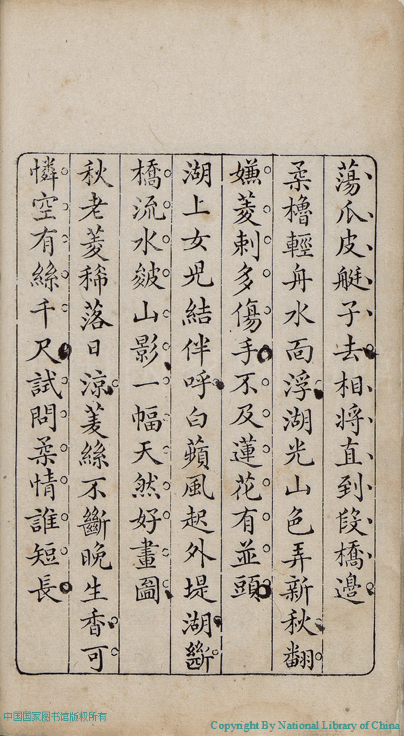 蕩瓜皮艇子去相將直到段橋邊
柔櫓輕舟水面浮湖光山色弄新秋翻
嫌菱刺多傷手不及蓮花有並頭
湖上女兒結伴呼白蘋風起外堤湖斷
橋流水皴山影一幅天然好畫圖
秋老菱稀落日涼菱絲不斷晚生香可
憐空有絲千尺試問柔情誰短長
中国国家图书馆版权所有
Copyright By National Library of China